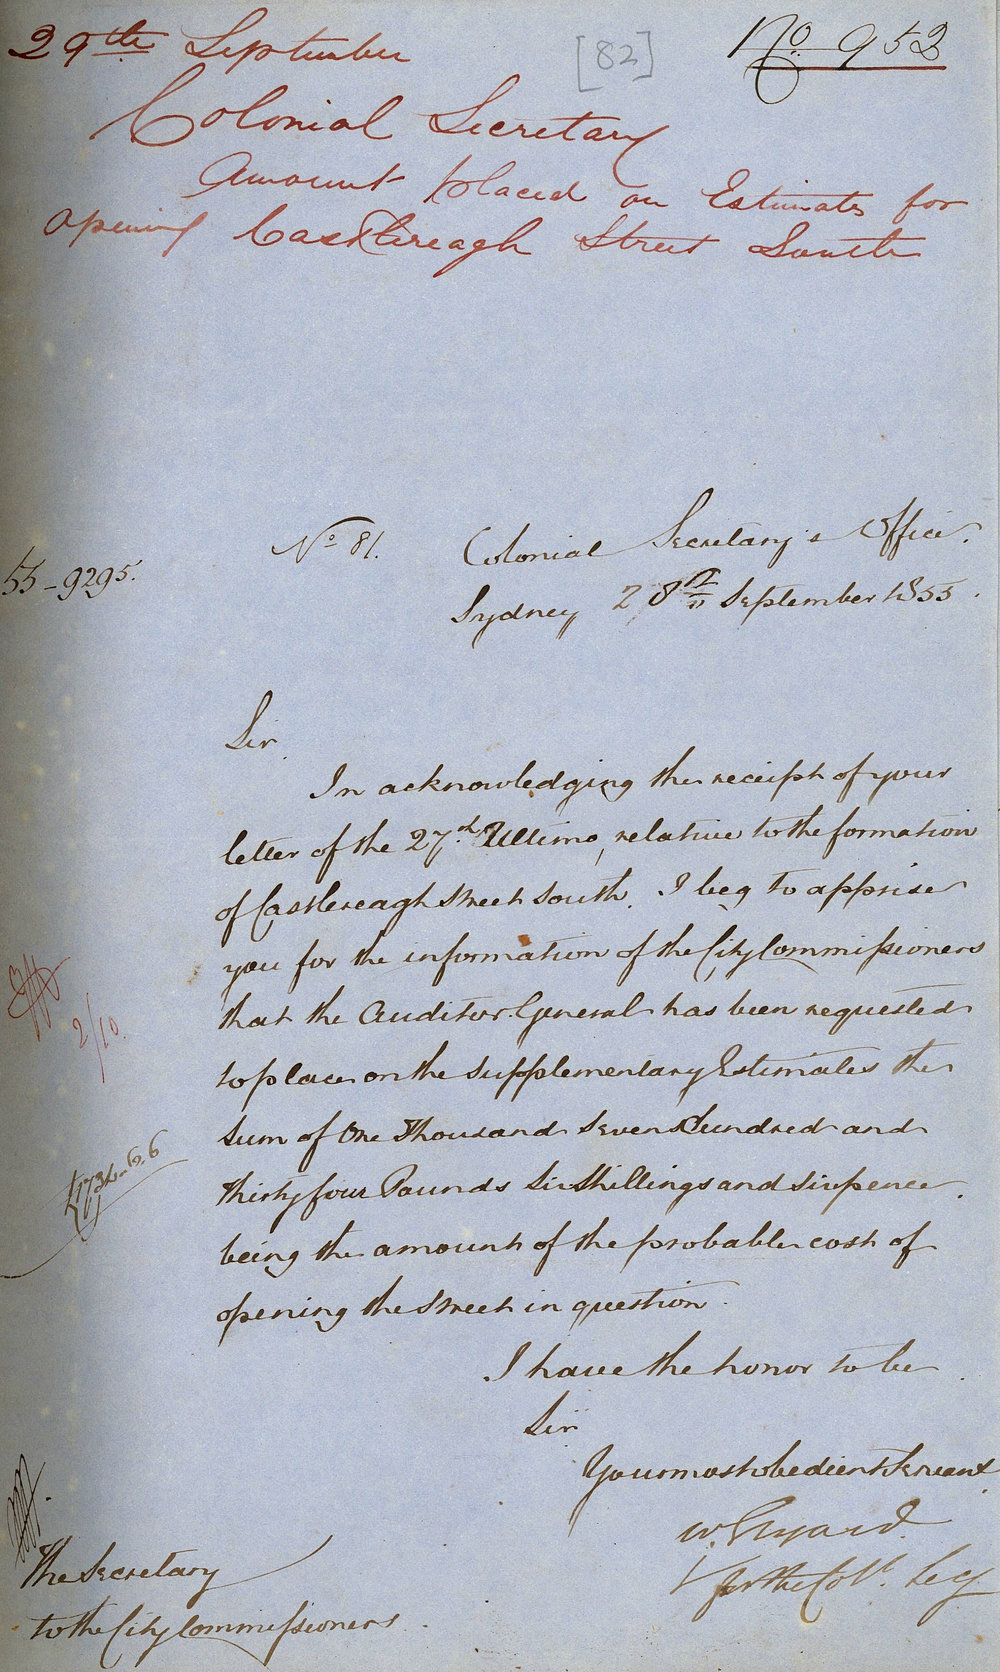 29th September
[82]
No. 952
Colonial Secretary
Amount placed on Estimates for
opening Castlereagh Street South
55-9295.
No 81.
Colonial Secretary's Office.
Sydney 28th September 1855.
Sir
In acknowledging the receipt of your
letter of the 27th Ultimo, relative to the formation
of Castlereagh Street South. I beg to apprise
you for the information of the City Commissioners
that the Auditor General has been requested
to place on the Supplementary Estimates the
sum of One Thousand Seven Hundred and
thirty four Pounds Six Shillings and Sixpence
being the amount of the probable cost of
opening the Street in question.
2/10.
£1734.6.6
I have the honor to be
Sir
Your most obedient Servant
W. Elyard
for the Coll. Secy
The Secretary
to the City Commissioners.